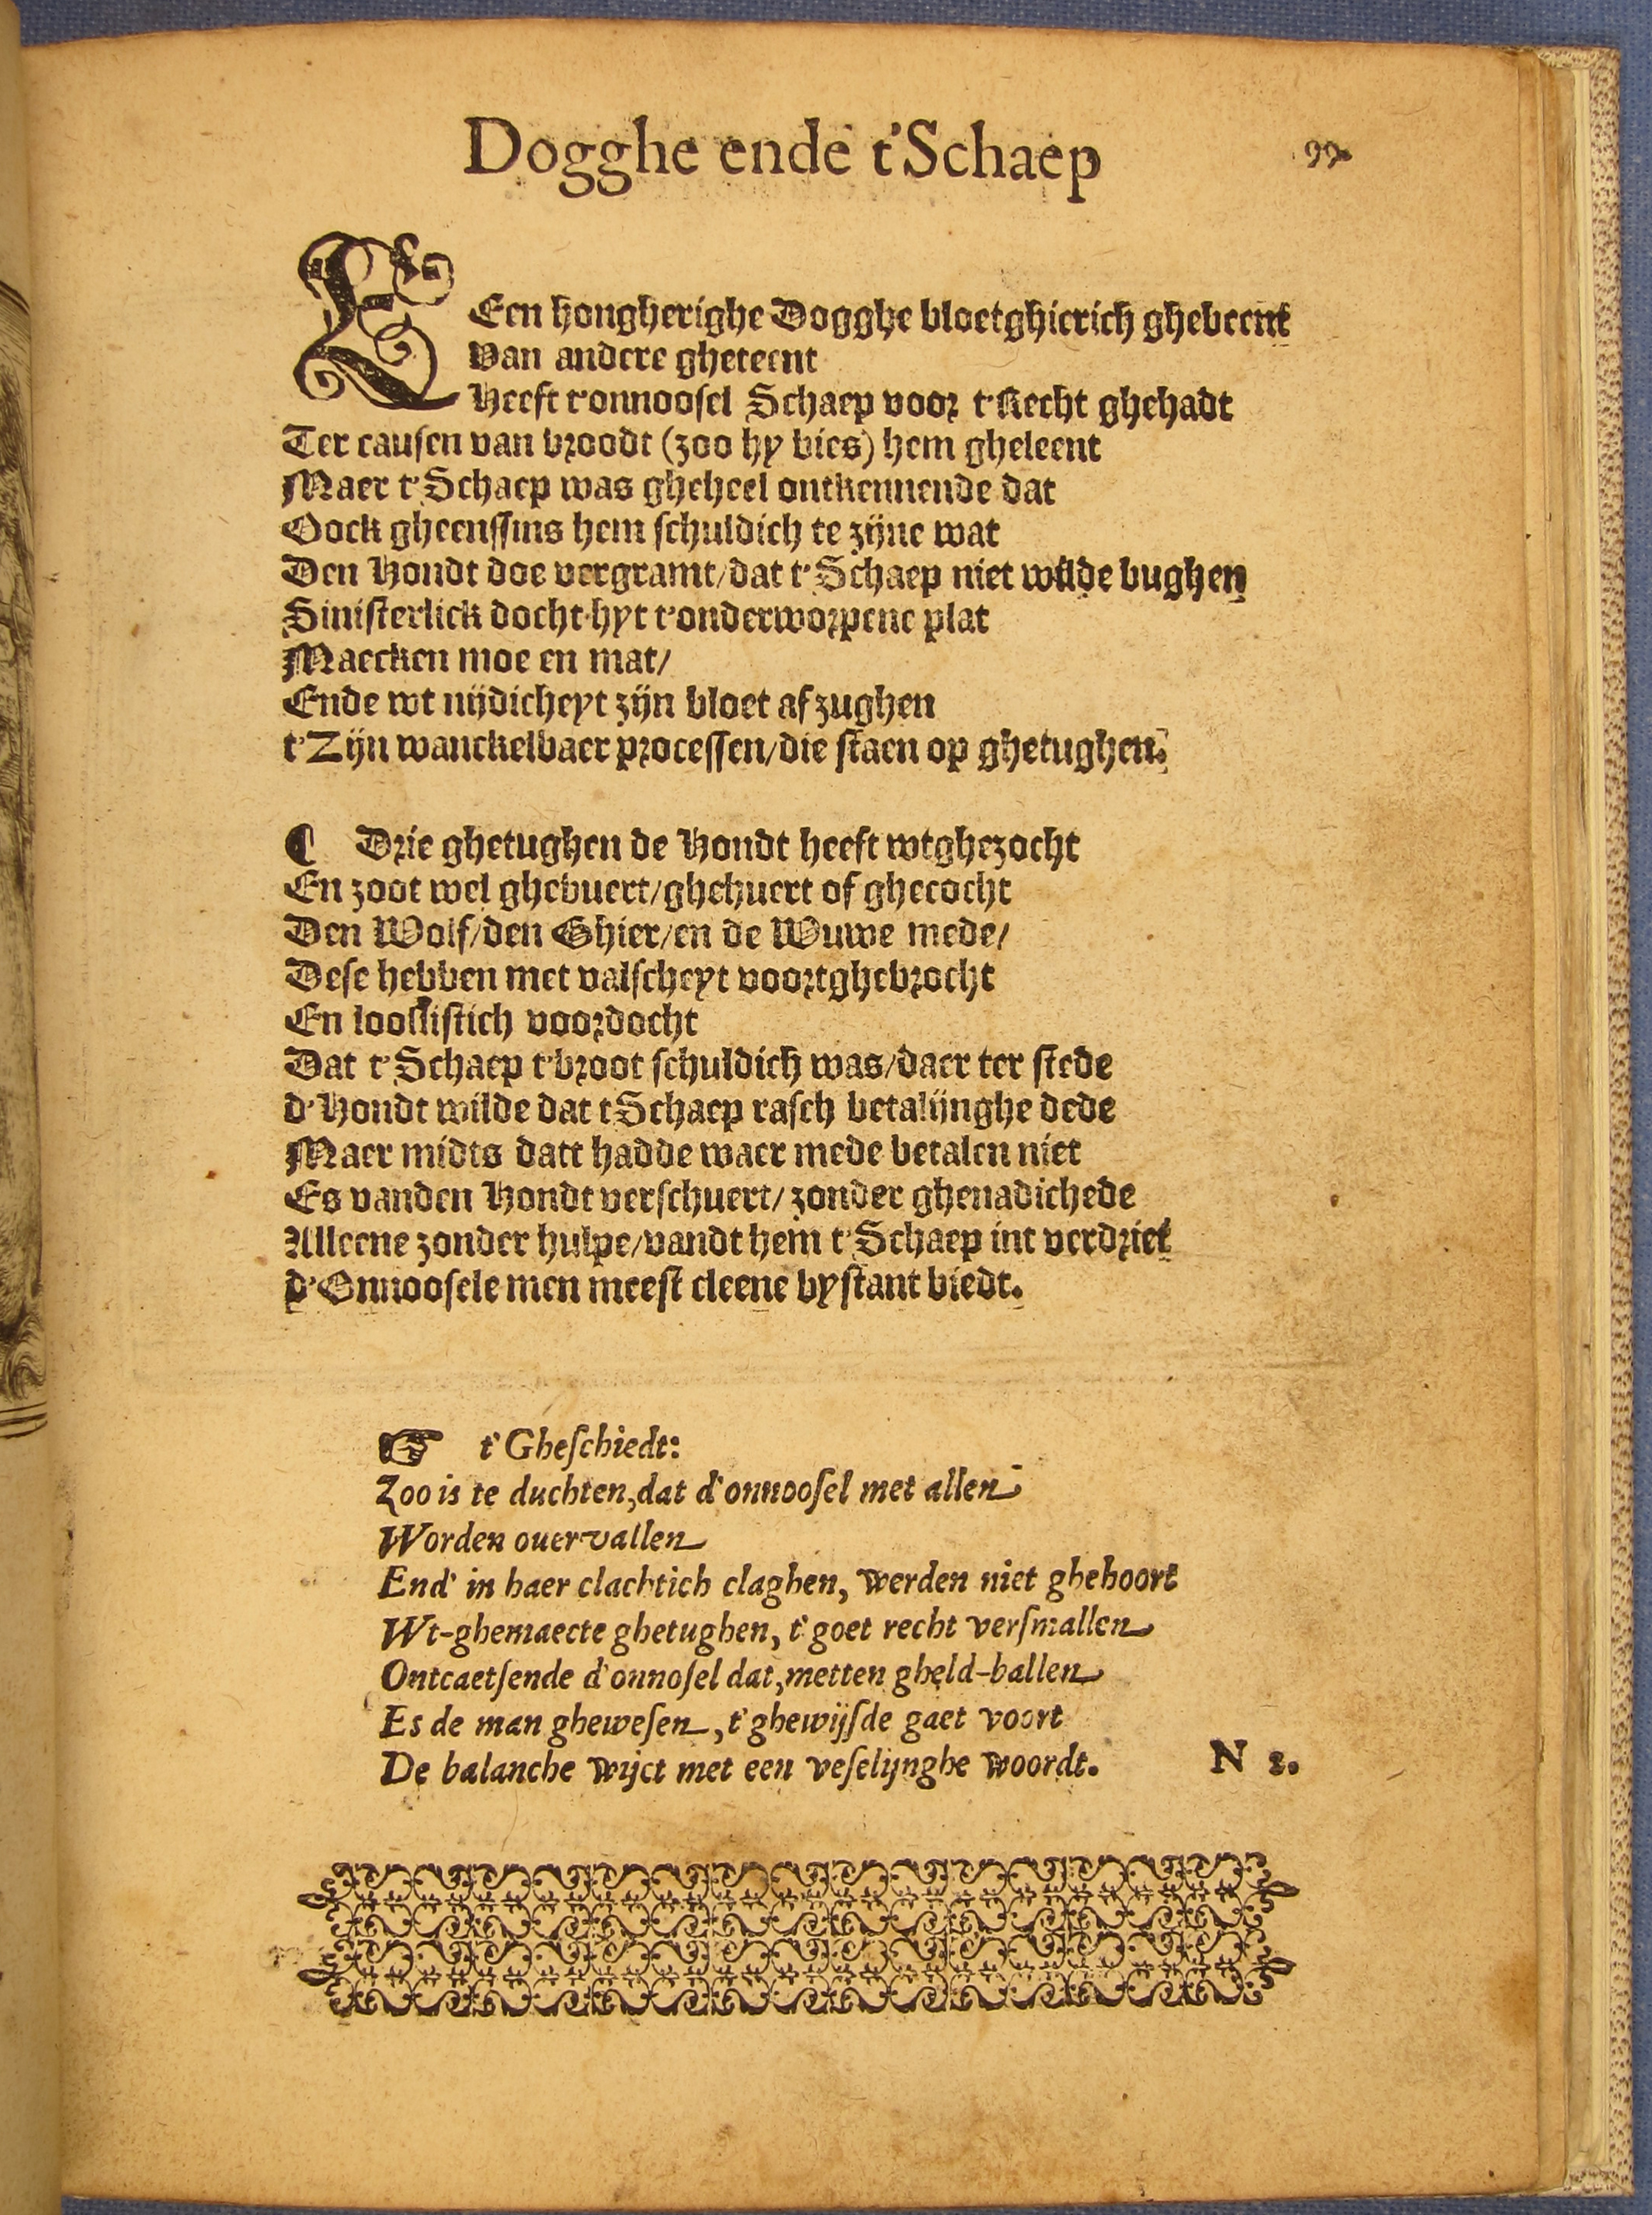 Dogghe ende t'Schaep 99.
EEen hongherighe Dogghe bloetghierich ghebeent
Van andere gheteent
Heeft t'onnoosel Schaep voor t'Recht ghehadt
Ter causen van broodt (zoo hy bies) hem gheleent
Maer t'Schaep was gheheel ontkennende dat
Oock gheenssins hem schuldich te zijne wat
Den Hondt doe vergramt/dat t'Schaep niet wilde bughen
Sinisterlick docht hyt t'onderworpene plat
Maecken moe en mat/
Ende wt nijdicheyt zijn bloet af zughen
t'Zijn wanckelbaer processen/die staen op ghetughen.
¶ Drie ghetughen de Hondt heeft wtghezocht
En zoot wel ghebuert/ghehuert of ghecocht
Den Wolf/den Ghier/en de Wuwe mede/
Dese hebben met valscheyt voortghebrocht
En looslistich voordocht
Dat t'Schaep t'broot schuldich was/daer ter stede
d'Hondt wilde dat tSchaep rasch betalijnghe dede
Maer midts datt hadde waer mede betalen niet
Es vanden Hondt verschuert/zonder ghenadichede
Alleene zonder hulpe/vandt hem t'Schaep int verdriet
d'Onnoosele men meest cleene bystant biedt.
☞ t'Gheschiedt:
Zoo is te duchten, dat d'onnoosel met allen
Worden ouervallen
End' in haer clachtich claghen, werden niet ghehoort
Wt-ghemaecte ghetughen, t'goet recht versmallen
Ontcaetsende d'onnosel dat, metten gheld-ballen
Es de man ghewesen, t'ghewijsde gaet voort
De balanche wijct met een veselijnghe woordt. N 2.